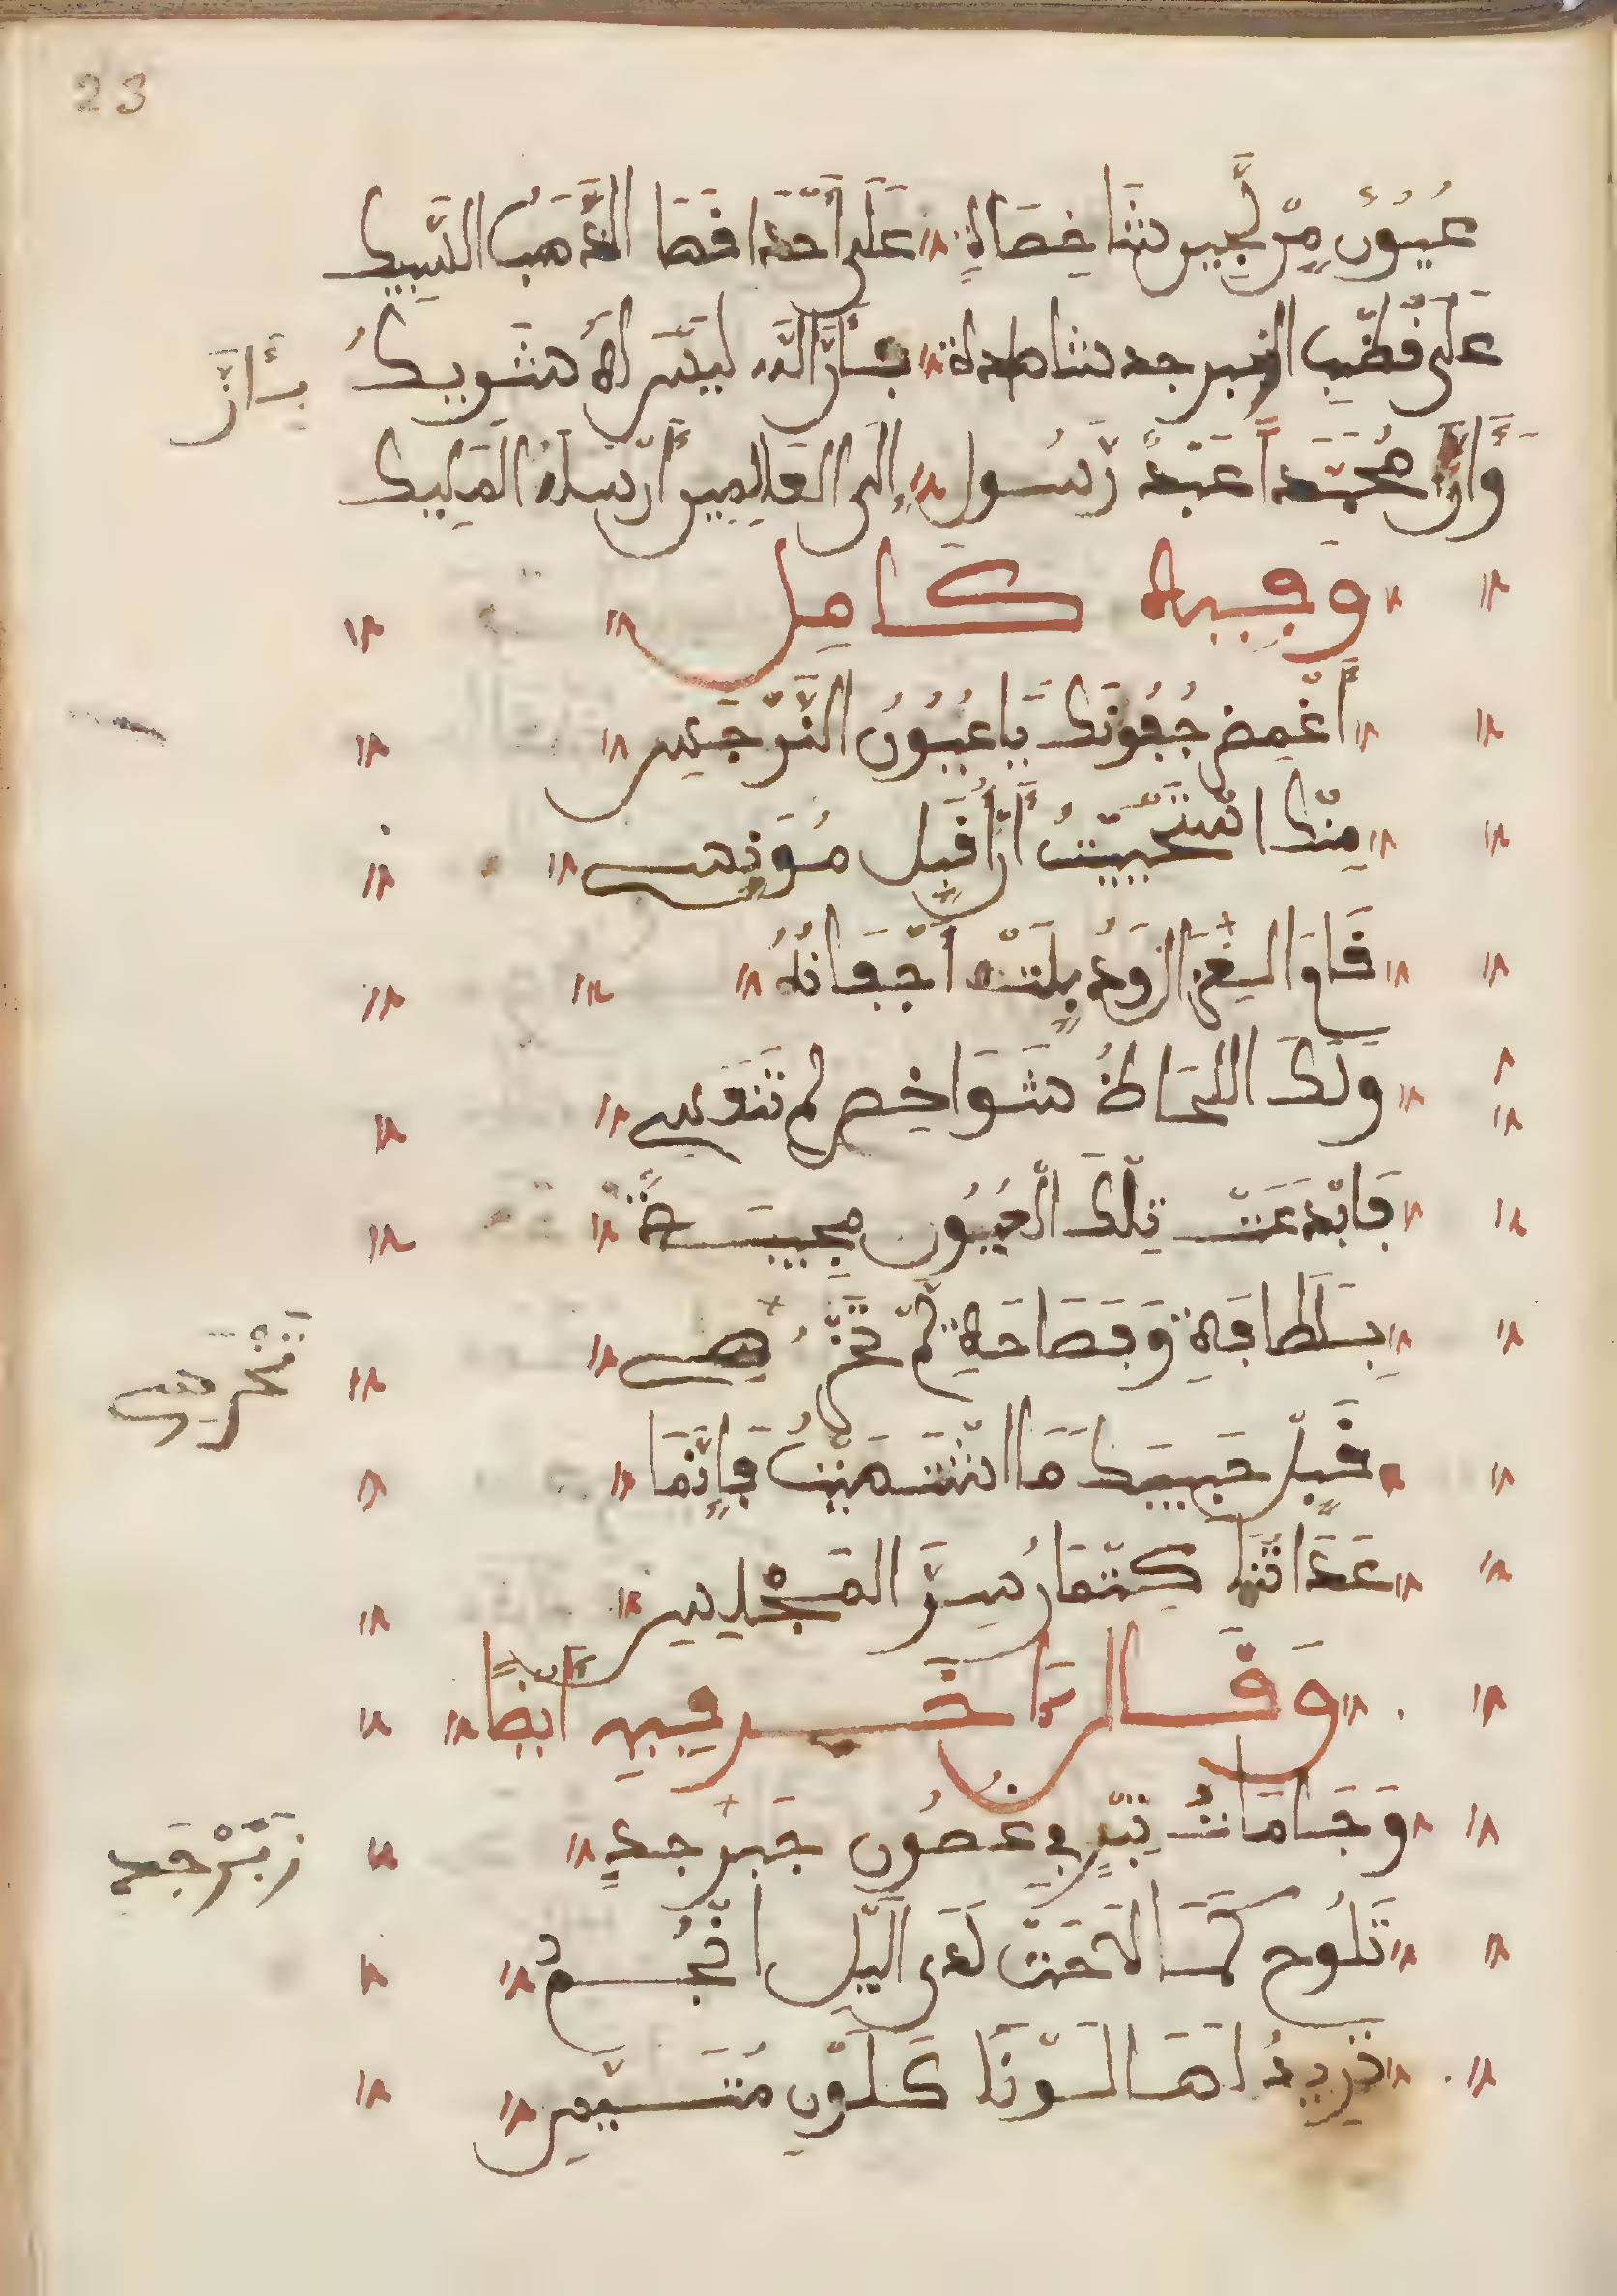 23
عُيُونٌ مِّن لُّجَيْن شَاخِصَاةٍ عَلَى أَحْدَاقهَا الذَّهَبُ السَّبِيكُ
عَلَى قُضُبِ الزبرجد شاهدة بأنَّ الله ليس له شَرِيكُ
بِأَنَّ
وَأَنَّ مُحَمَّداً عَبْدٌ رَسُول إِلَى الثَّقَلَيْنِ أَرْسَلهُ المَلِيكُ
وفيه كَامِل
أَغْمِض جُفُونَكَ يَا عُيُونُ النَّرْجِسِ
مِنْكَ اسْتَحْيَيْتُ أَنْ أُقَبِّل مُؤنِسِي
نَامَ الحَبِيبُ تَذَبَّلَتْ أَجْفَانُهُ
وَلَكَ اللِّحَاظُ شَوَاخِص لم تَنْعَسِ
فَابْتَدَعَتْ تِلْكَ الْعُيُون مجِيبَةً
بِلَطَافَةٍ وَفَصَاحَةٍ لَمْ تَخْرسِ
تَخْرسِ
قَبِّلْ حَبِيبَكَ مَا اشْتَهَيْتَ فَإِنَّمَا
عَادَاتُنَا كِتْمَانُ سِرِّ المَجْلِسِ
وَقَالَ آخَر فِيهِ أَيْضاً
وَجَامَاتُ تِبْرٍ فِي غُصُون جَبَرْجَدٍ
زَبَرْجَد
تَلُوح كَمَا لَاحَتْ لَدَى اللَّيْل انْجُمُ
يُرِيدُ لَهَا لَوْنًا كَلَوْنِ مُتَيَّمِ